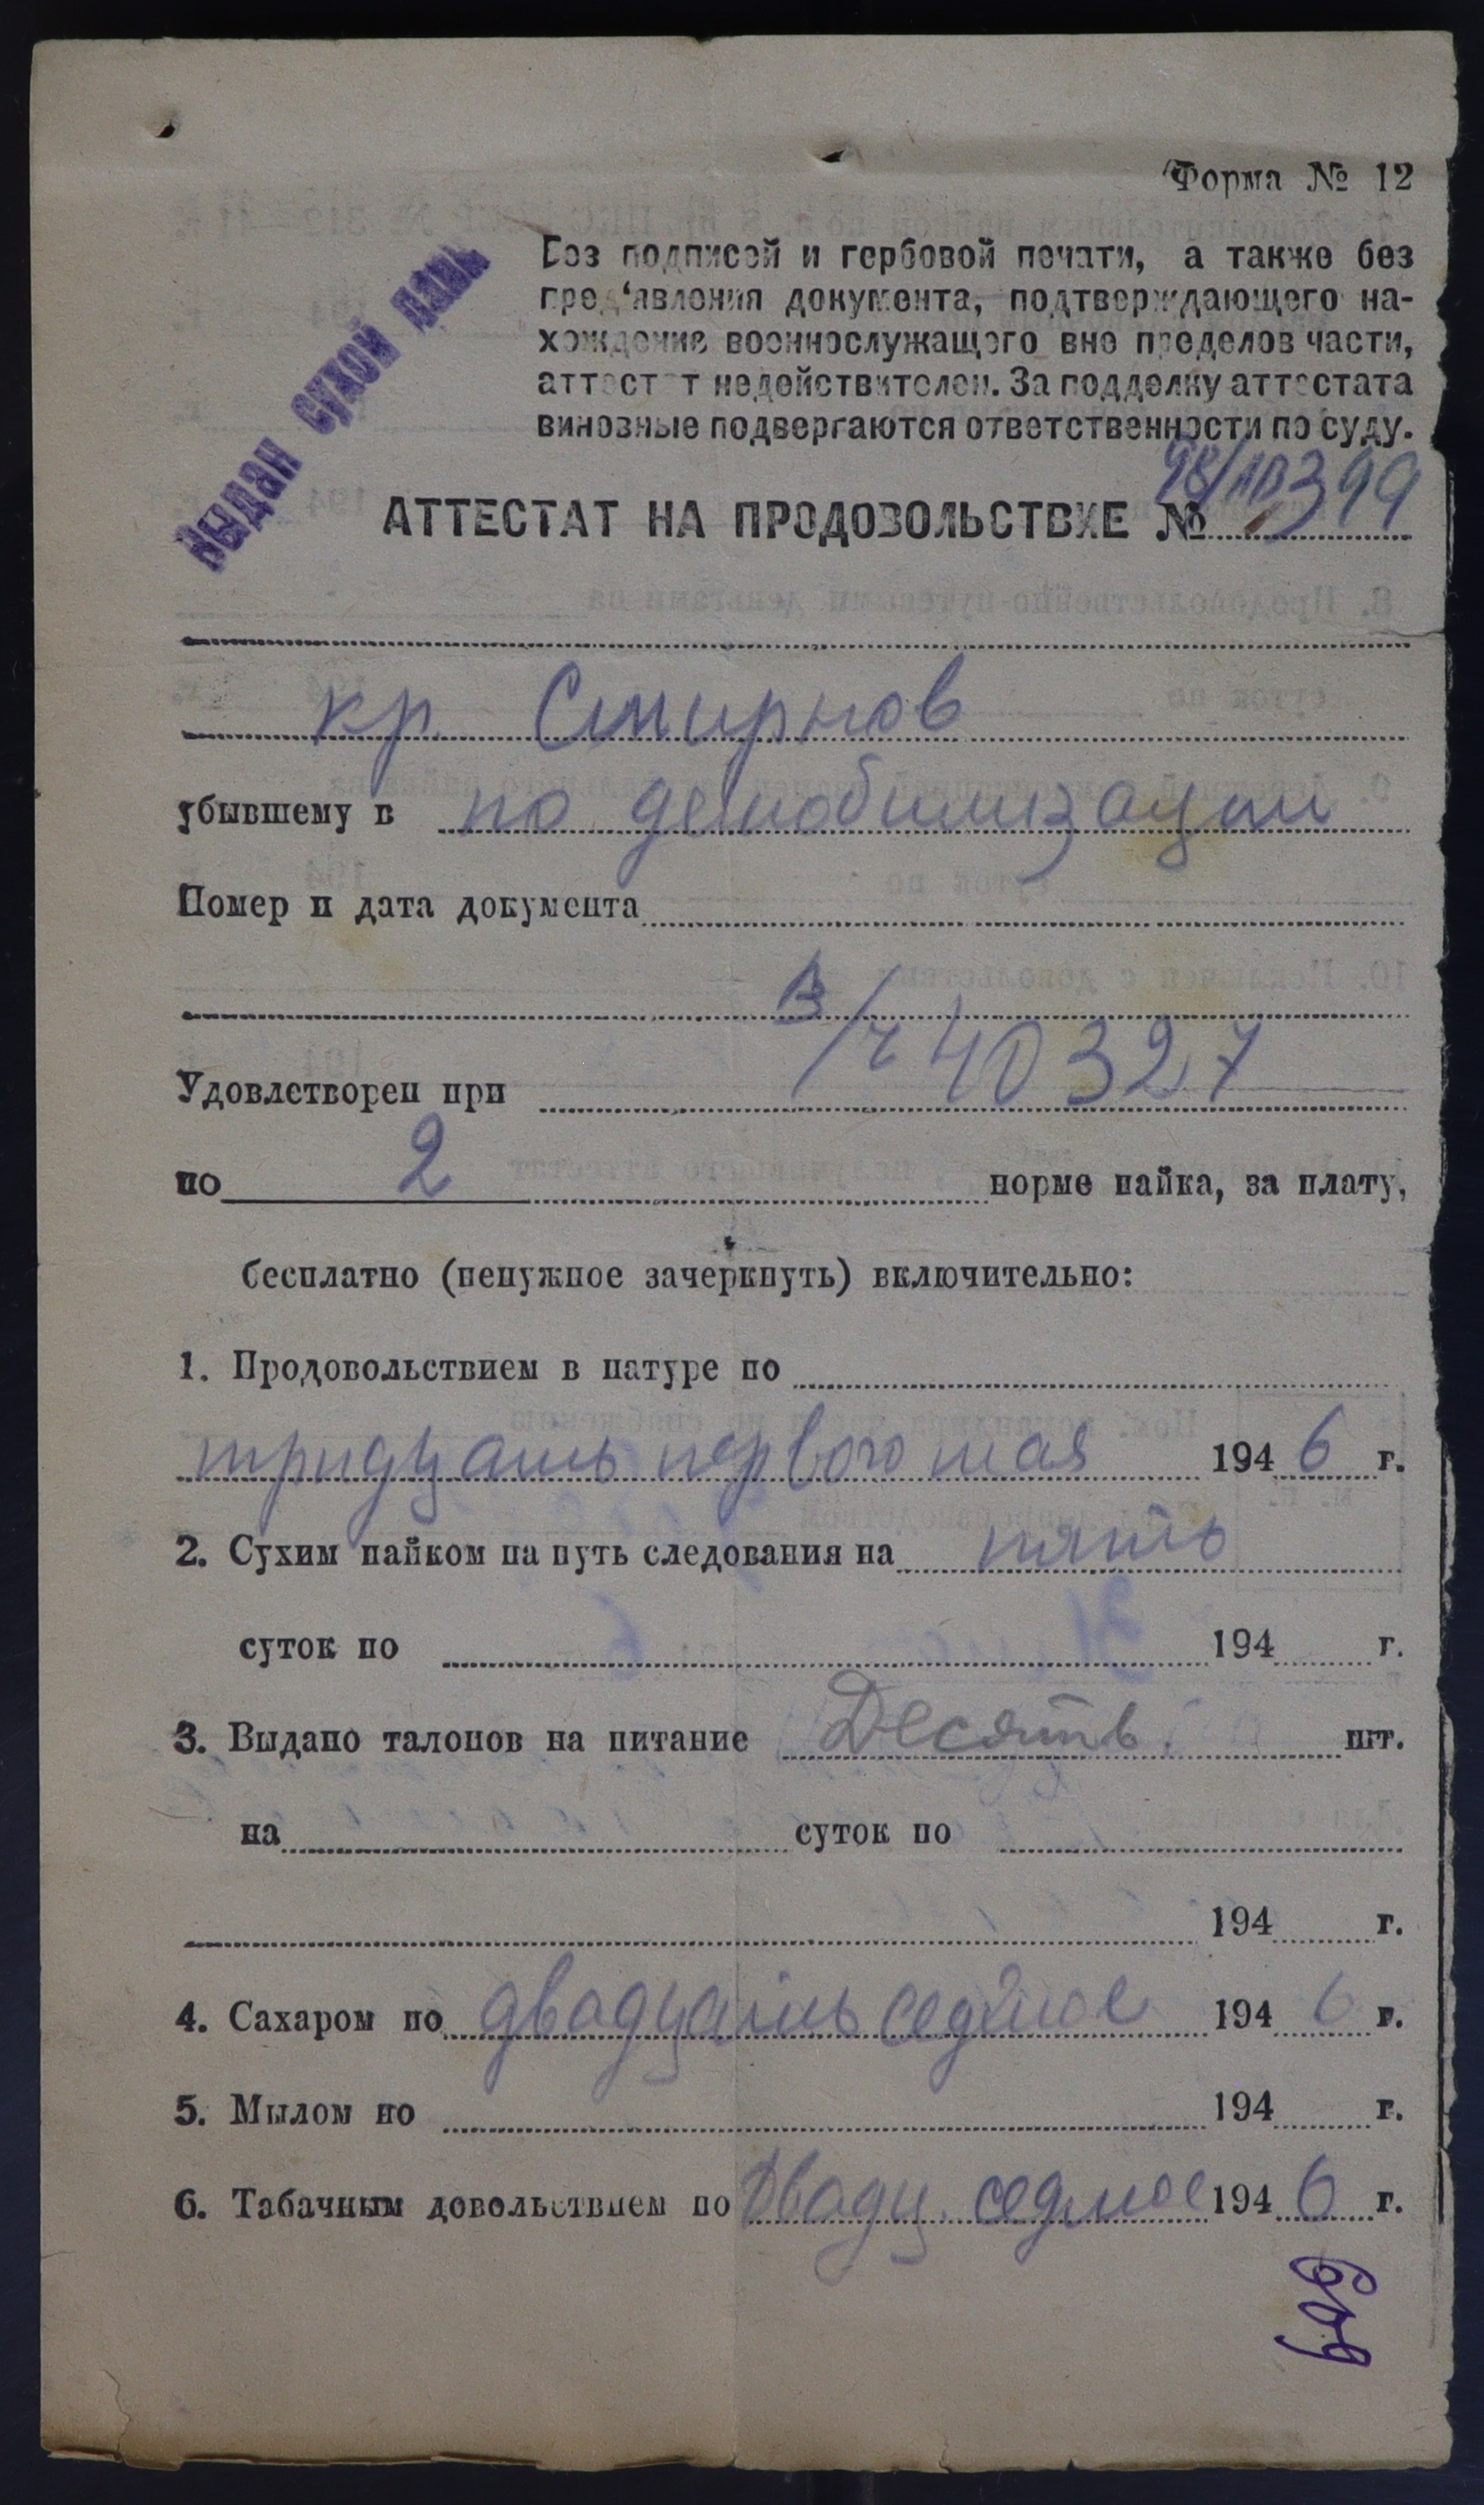 Форма № 12
Выдан сухой паек
Без подписей и гербовой печати, а также без
пред‘явления документа, подтверждающего на-
хождение военнослужащего вне пределов части,
аттестат недействителен. За подделку аттестата
виновные подвергаются ответственности по суду.
АТТЕСТАТ НА ПРОДОВОЛЬСТВИЕ № 399
кр. Смирнов
убывшему в по демобилизации
Номер и дата документа
Удовлетворен при В/ч 40327
по 2 норме пайка, за плату,
бесплатно (ненужное зачеркнуть) включительно:
1. Продовольствием в натуре по
тридцать первого мая 1946 г.
2. Сухим пайком на путь следования на пять
суток по 194 г.
3. Выдано талонов на питание Десять шт.
на суток по
194 г.
4. Сахаром по двадцать седмое 1946 г.
5. Мылом по 194 г.
6. Табачным довольствием по Двадц. седмое 1946 г.